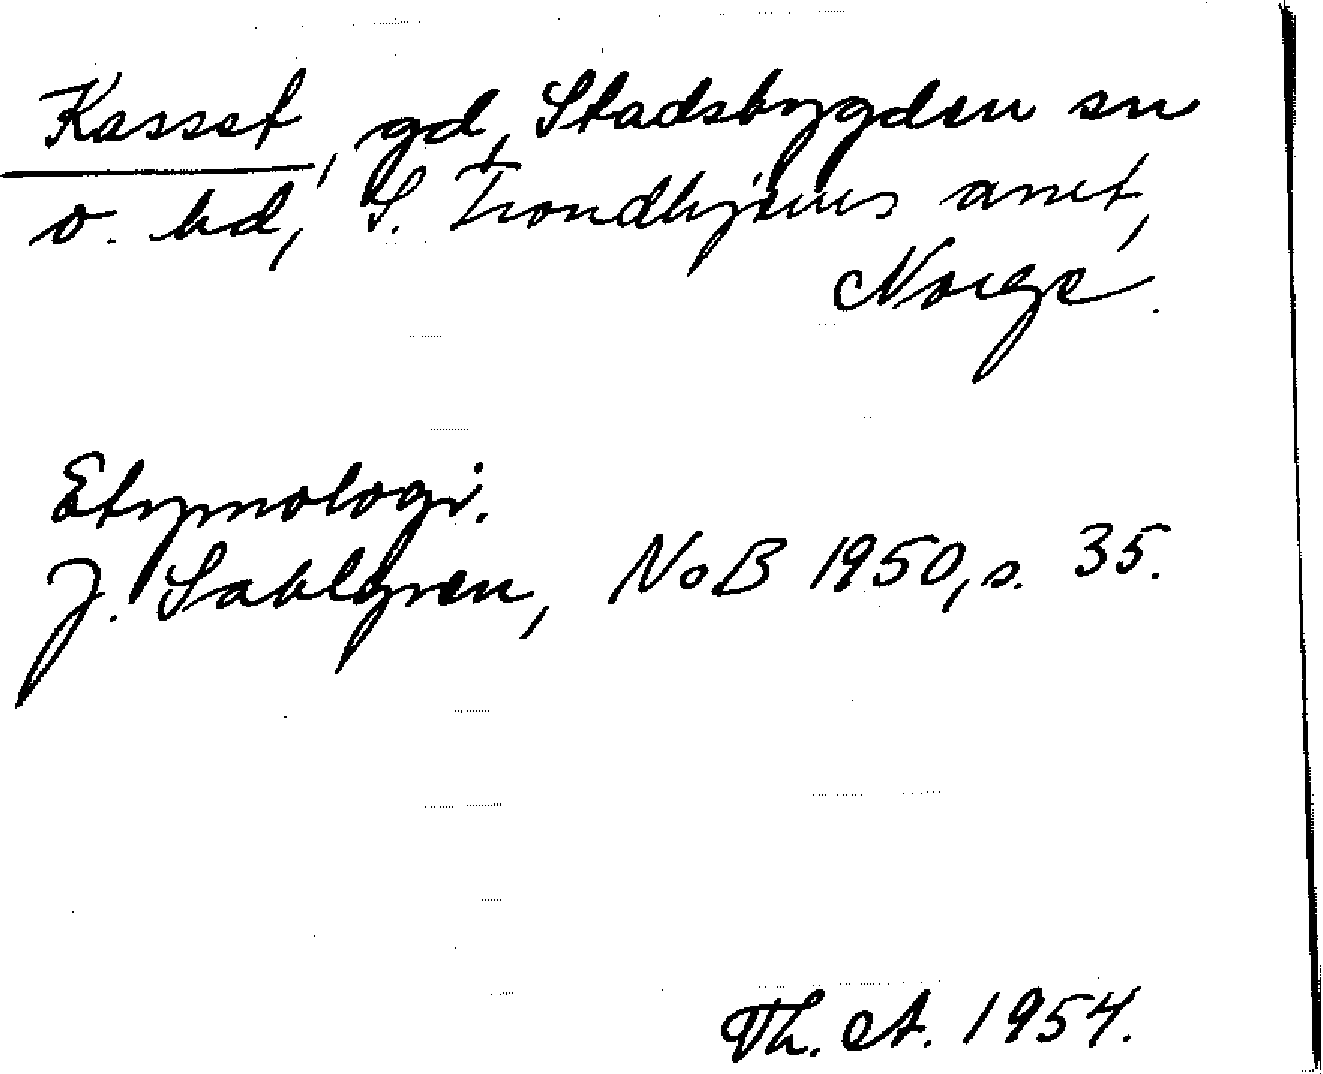 Kasset, gd, Stadsbygden sn
o. hd, S. Trondhjems amt,
Norge.
Etymologi.
J. Sahlgren, NoB 1950, s. 35.
Th. A. 1954.